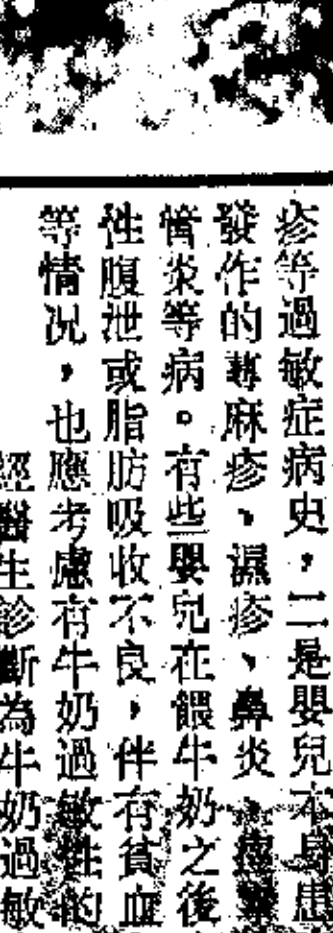 疹等過敏症病史，二是嬰兒本身患
發作的蕁麻疹、濕疹、鼻炎、
管炎等病。有些嬰兒在餵牛奶之後
性腹泄或脂肪吸收不良，伴有貧血
等情況，也應考慮有牛奶過敏性的
經醫生診斷為牛奶過敏